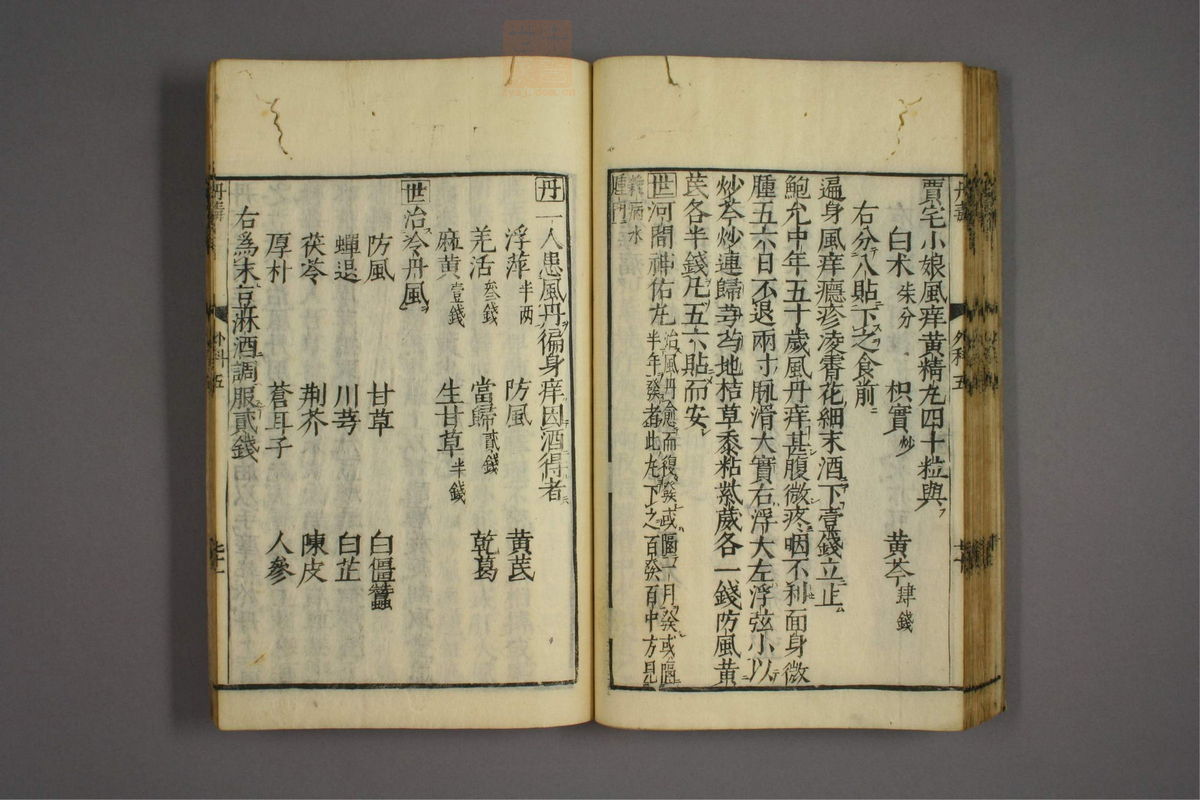 賈宅小娘風痒黄精丸四十粒與
白术 朱分 枳實 炒 黄芩 肆錢
右分八貼下之食前
遍身風痒癮疹凌霄花細末酒下壹錢立止
鮑允中年五十歲風丹痒甚腹微疼咽不利面身微
腫五六日不退兩寸脉滑大實右浮大左浮弦小以
炒芩炒連歸芎芍地桔草黍粘葳蕤各一錢防風黄
芪各半錢凡五六貼而安
世 河間神佑丸 治風丹愈而復癸或隔一月癸或隔
半年癸者此丸下之百癸百中方見
腫門
丹 一人患風丹徧身痒因酒得者
浮萍 半两 防風 黄芪
羌活 叄錢 當歸 貳錢 乾葛
麻黄 壹錢 生甘草 半錢
世 治冷丹風
防風 甘草 白僵蠶
蟬退 川芎 白芷
茯苓 荆芥 陳皮
厚朴 蒼耳子 人參
右為末豆淋酒調服貳錢
外科五
外科五